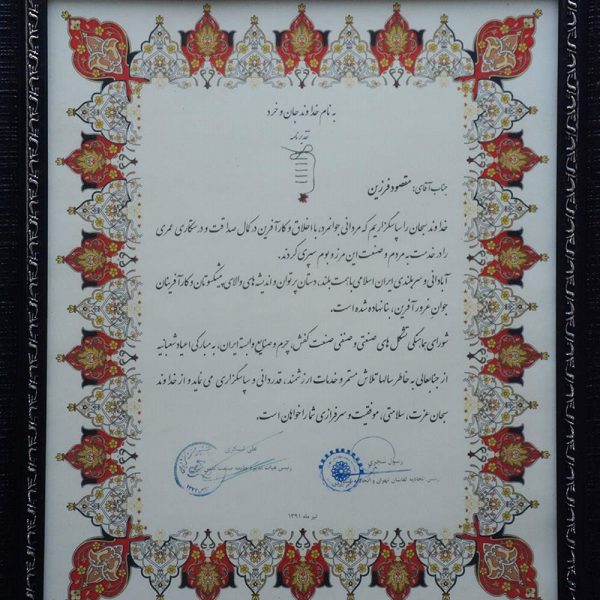 به نام خداوند جان و خرد
تقدیرنامه
جناب آقای: مقصود فرزین
خداوند سبحان را سپاسگزاریم که مردانی جوانمرد، با اخلاق و کارآفرین در کمال صداقت و درستکاری عمری
را در خدمت به مردم و صنعت این مرز و بوم سپری کردند.
آبادانی و سربلندی ایران اسلامی با همت بلند، دستان پرتوان و اندیشه‌های والای پیشکسوتان و کارآفرینان
جوان غرورآفرین، بنا نهاده شده است.
شورای هماهنگی تشکل‌های صنعتی و صنفی صنعت کفش، چرم و صنایع وابسته ایران، به مبارکی اعیاد شعبانیه
از جنابعالی به خاطر سالها تلاش مستمر و خدمات ارزشمند، قدردانی و سپاسگزاری می نماید و از خداوند
سبحان عزت، سلامتی، موفقیت و سرفرازی شما را خواهان است.
رسول شجری
علی
رئیس اتحادیه کفاشان تهران و
رئیس هیات مدیره جامعه صنعت کفش
تیر ماه ۱۳۹۱